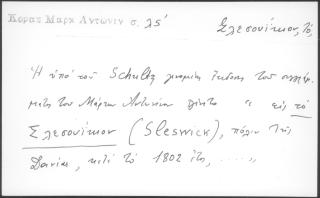 Κορας Μαρκ Αντωνιν σ. λς'
Σλεσουΐκιον, τό,
Ἡ ὑπό τοῦ Schultz γενομένη ἔκδοσις τοῦ συγγράμ-
ματος τοῦ Μάρκου Ἀντωνίνου " εἰς τό
Σλεσουίκιον (Sleswick), πόλιν τῆς
Δανίας, κατά τό 1802 ἔτος, .....,,